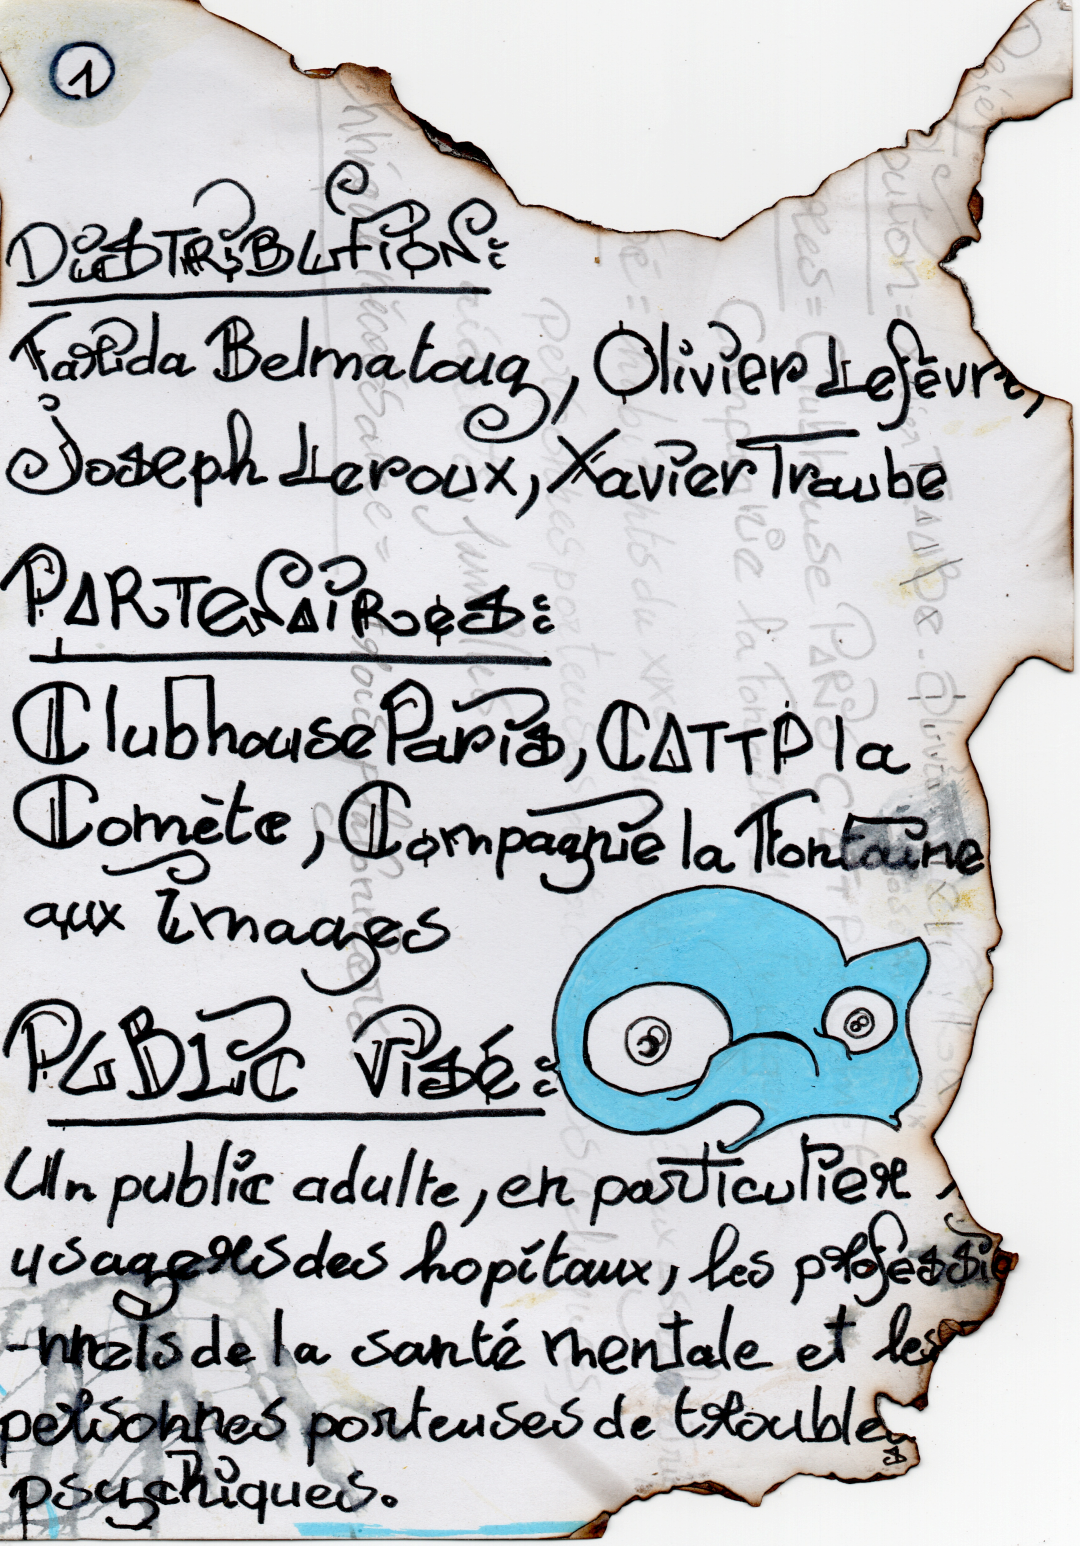 1
DISTRIBUTION:
Farida Belmatoug, Olivier Lefèvre,
Joseph Leroux, Xavier Traube
PARTENAIRES:
Clubhouse Paris, CATTP la
Comète, Compagnie la Fontaine
aux Images
PUBLIC VISÉ:
Un public adulte, en particulier
usagers des hopitaux, les professio
-nnels de la santé mentale et les
personnes porteuses de trouble
psychiques.